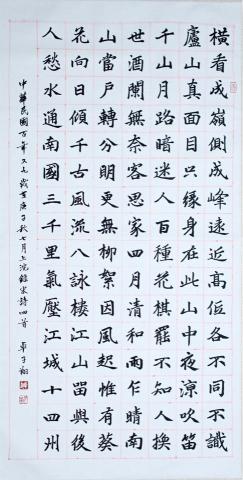 橫看成嶺側成峰遠近高低各不同不識
廬山真面目只緣身在此山中夜涼吹笛
千山月路暗迷人百種花棋罷不知人換
世酒闌無奈客思家四月清和雨乍晴南
山當戶轉分明更無柳絮因風起惟有葵
花向日傾千古風流八詠樓江山留與後
人愁水通南國三千里氣壓江城十四州
中華民國百年又九歲庚子秋七月上浣錄宋詩四首 卓子